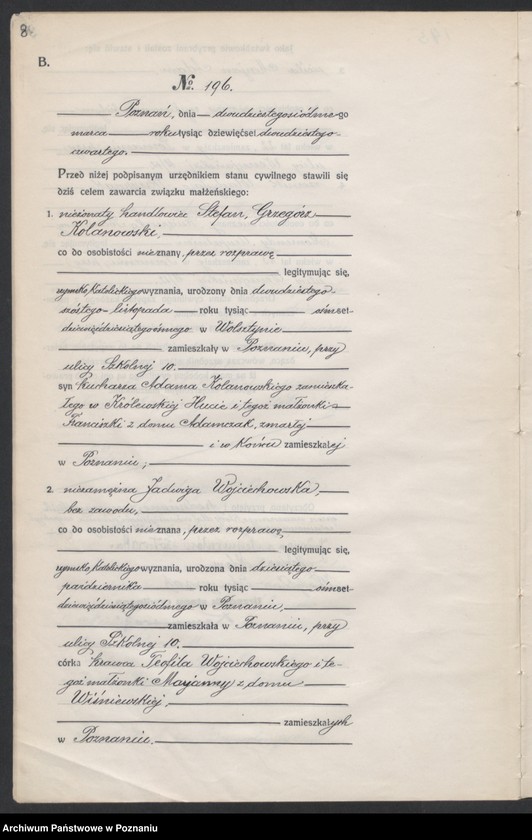 8
B.
No. 196.
Poznań, dnia dwudziestegosiódmego
marca roku tysiąc dziewięćset dwudziestego
czwartego.
Przed niżej podpisanym urzędnikiem stanu cywilnego stawili się
dziś celem zawarcia związku małżeńskiego:
1. nieżonaty handlowiec Stefan, Grzegórz
Kolanowski,
co do osobistości nieznany, przez rozprawę
legitymując się,
rzymsko, Katolickiego wyznania, urodzony dnia dwudziestego
szóstego listopada roku tysiąc ośmset-
dziewięćdziesiątegoósmego w Wolsztynie
zamieszkały w Poznaniu, przy
ulicy Szkolnej 10.
syn kucharza Adama Kolanowskiego zamieszka-
łego w Królewskiej Hucie i tegoż małżonki
Franciszki z domu Adamczak, zmarłej
i w końcu zamieszkałej
w Poznaniu;
2. niezamężna Jadwiga Wojciechowska,
bez zawodu,
co do osobistości nieznana, przez rozprawę,
legitymując się,
rzymsko, Katolickiego wyznania, urodzona dnia dziesiątego
października roku tysiąc ośmset-
dziewięćdziesiątegosiódmego w Poznaniu,
zamieszkała w Poznaniu, przy
ulicy Szkolnej 10.
córka krawca Teofila Wojciechowskiego i te-
goż małżonki Maryanny z domu
Wiśniewskiej,
zamieszkałych
w Poznaniu.
Archiwum Państwowe w Poznaniu